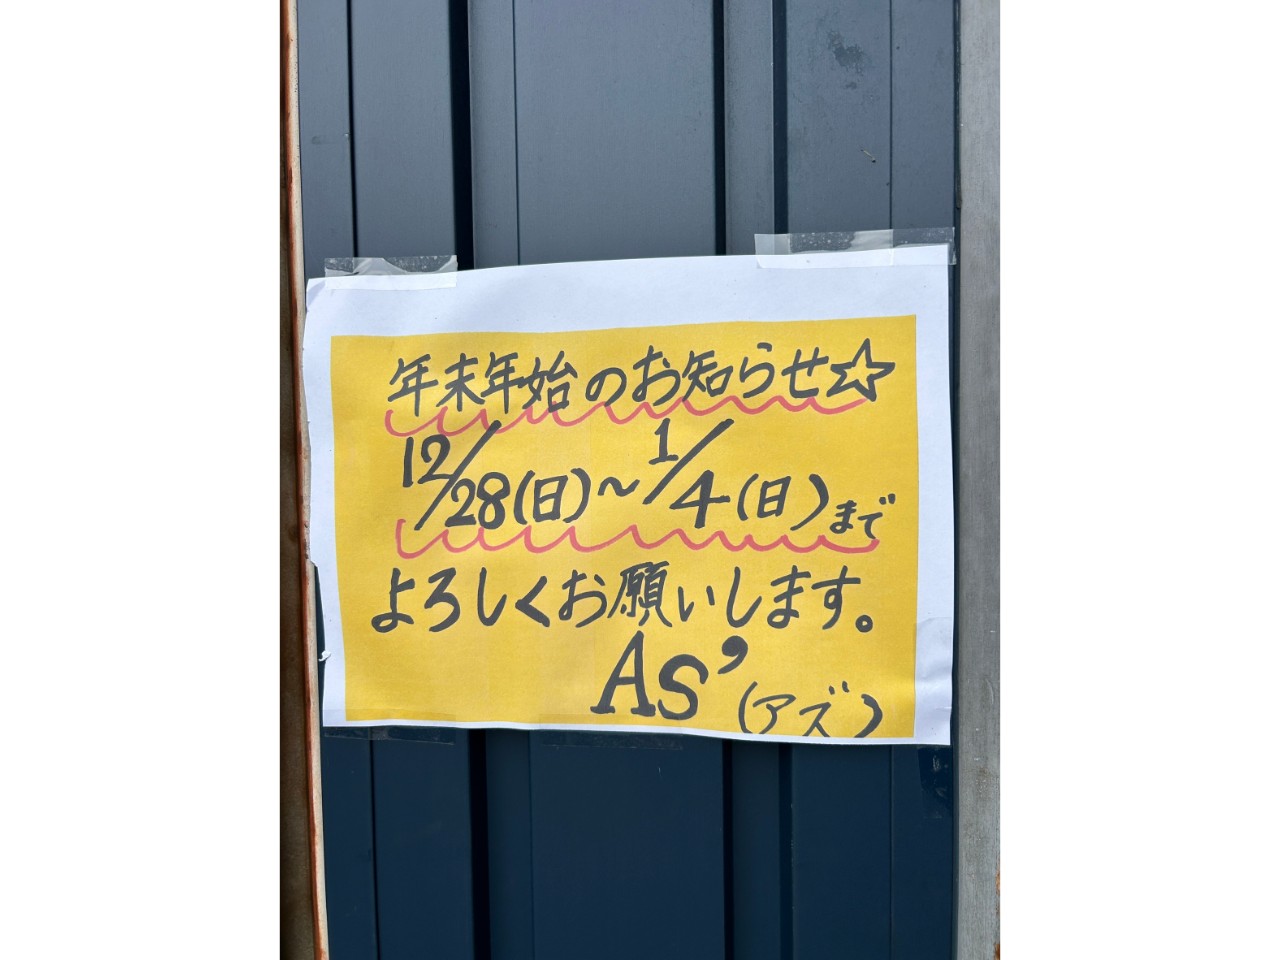 年末年始のお知らせ☆
12/28(日)~1/4(日)まで
よろしくお願いします。
As'(アズ)